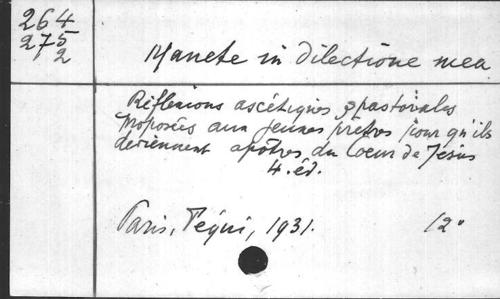 264
275
2
Manete in dilectione mea
Réflexions ascétiques & pastorales
proposées aux jeunes prêtres pour qu'ils
deviennent apôtres du Coeur de Jésus
4. éd.
Paris, Téqui, 1931. 12°